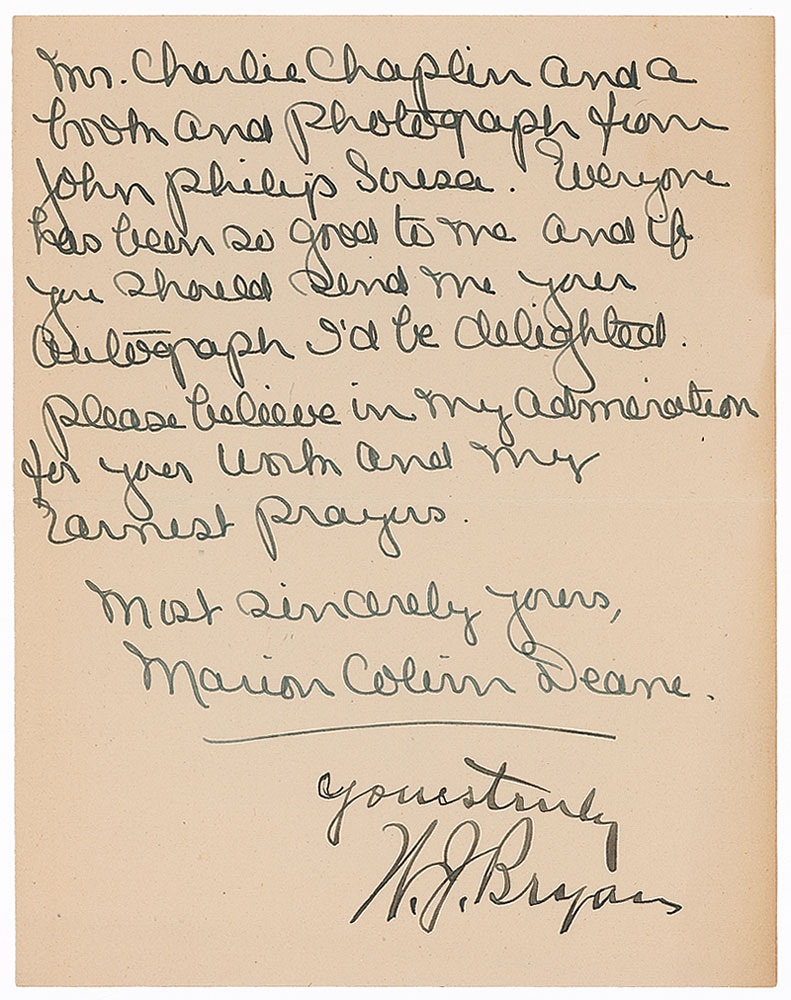 Mr. Charlie Chaplin and a
book and photograph from
John Philip Sousa. Everyone
has been so good to me and if
you should send me your
autograph I'd be delighted.
Please believe in my admiration
for your work and my
earnest prayers.
Most sincerely yours,
Marion Deane.
Yours truly
W. J. Bryan